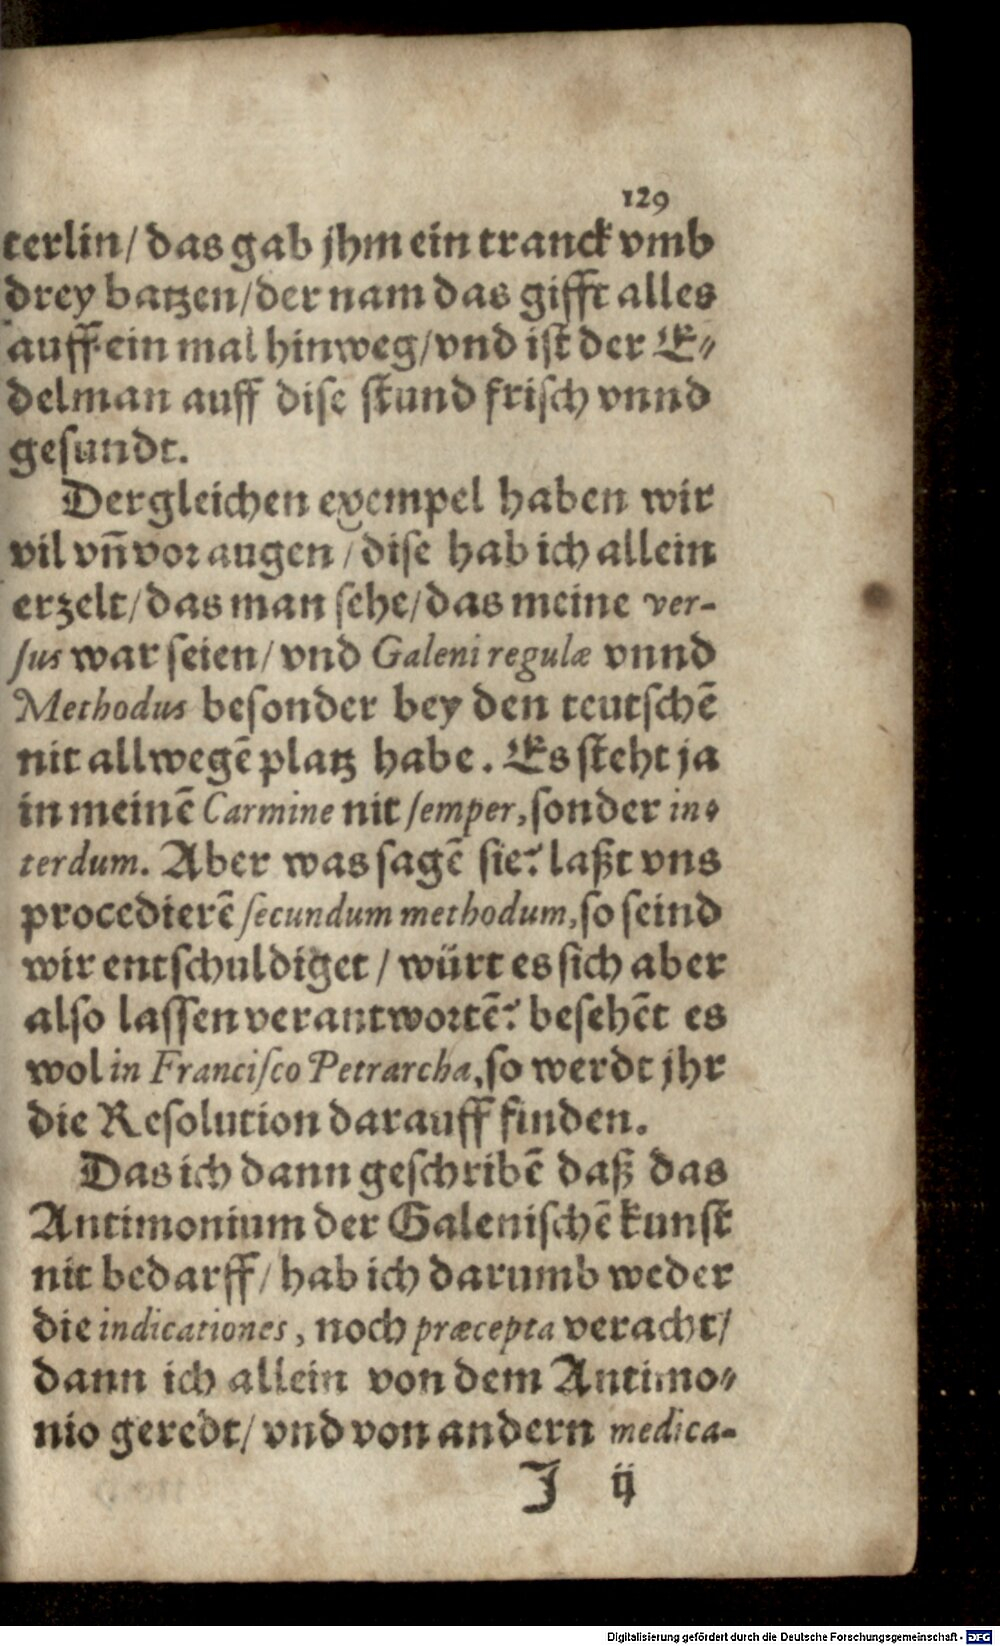 129
terlin/ das gab jhm ein tranck vmb
drey batzen/ der nam das gifft alles
auff ein mal hinweg/ vnd ist der E⸗
delman auff dise stund frisch vnnd
gesundt.
Dergleichen exempel haben wir
vil vñ vor augen / dise hab ich allein
erzelt/ das man sehe/ das meine ver-
sus war seien/ vnd Galeni regulæ vnnd
Methodus besonder bey den teutschẽ
nit allwegẽ platz habe. Es steht ja
in meinẽ Carmine nit semper, sonder in⸗
terdum. Aber was sagẽ sie? laßt vns
procedierẽ secundum methodum, so seind
wir entschuldiget / würt es sich aber
also lassen verantwortẽ? besehẽt es
wol in Francisco Petrarcha, so werdt jhr
die Resolution darauff finden.
Das ich dann geschribẽ daß das
Antimonium der Galenischẽ kunst
nit bedarff/ hab ich darumb weder
die indicationes, noch præcepta veracht/
dann ich allein von dem Antimo⸗
nio geredt/ vnd von andern medica-
J ij
Digitalisierung gefördert durch die Deutsche Forschungsgemeinschaft - DFG